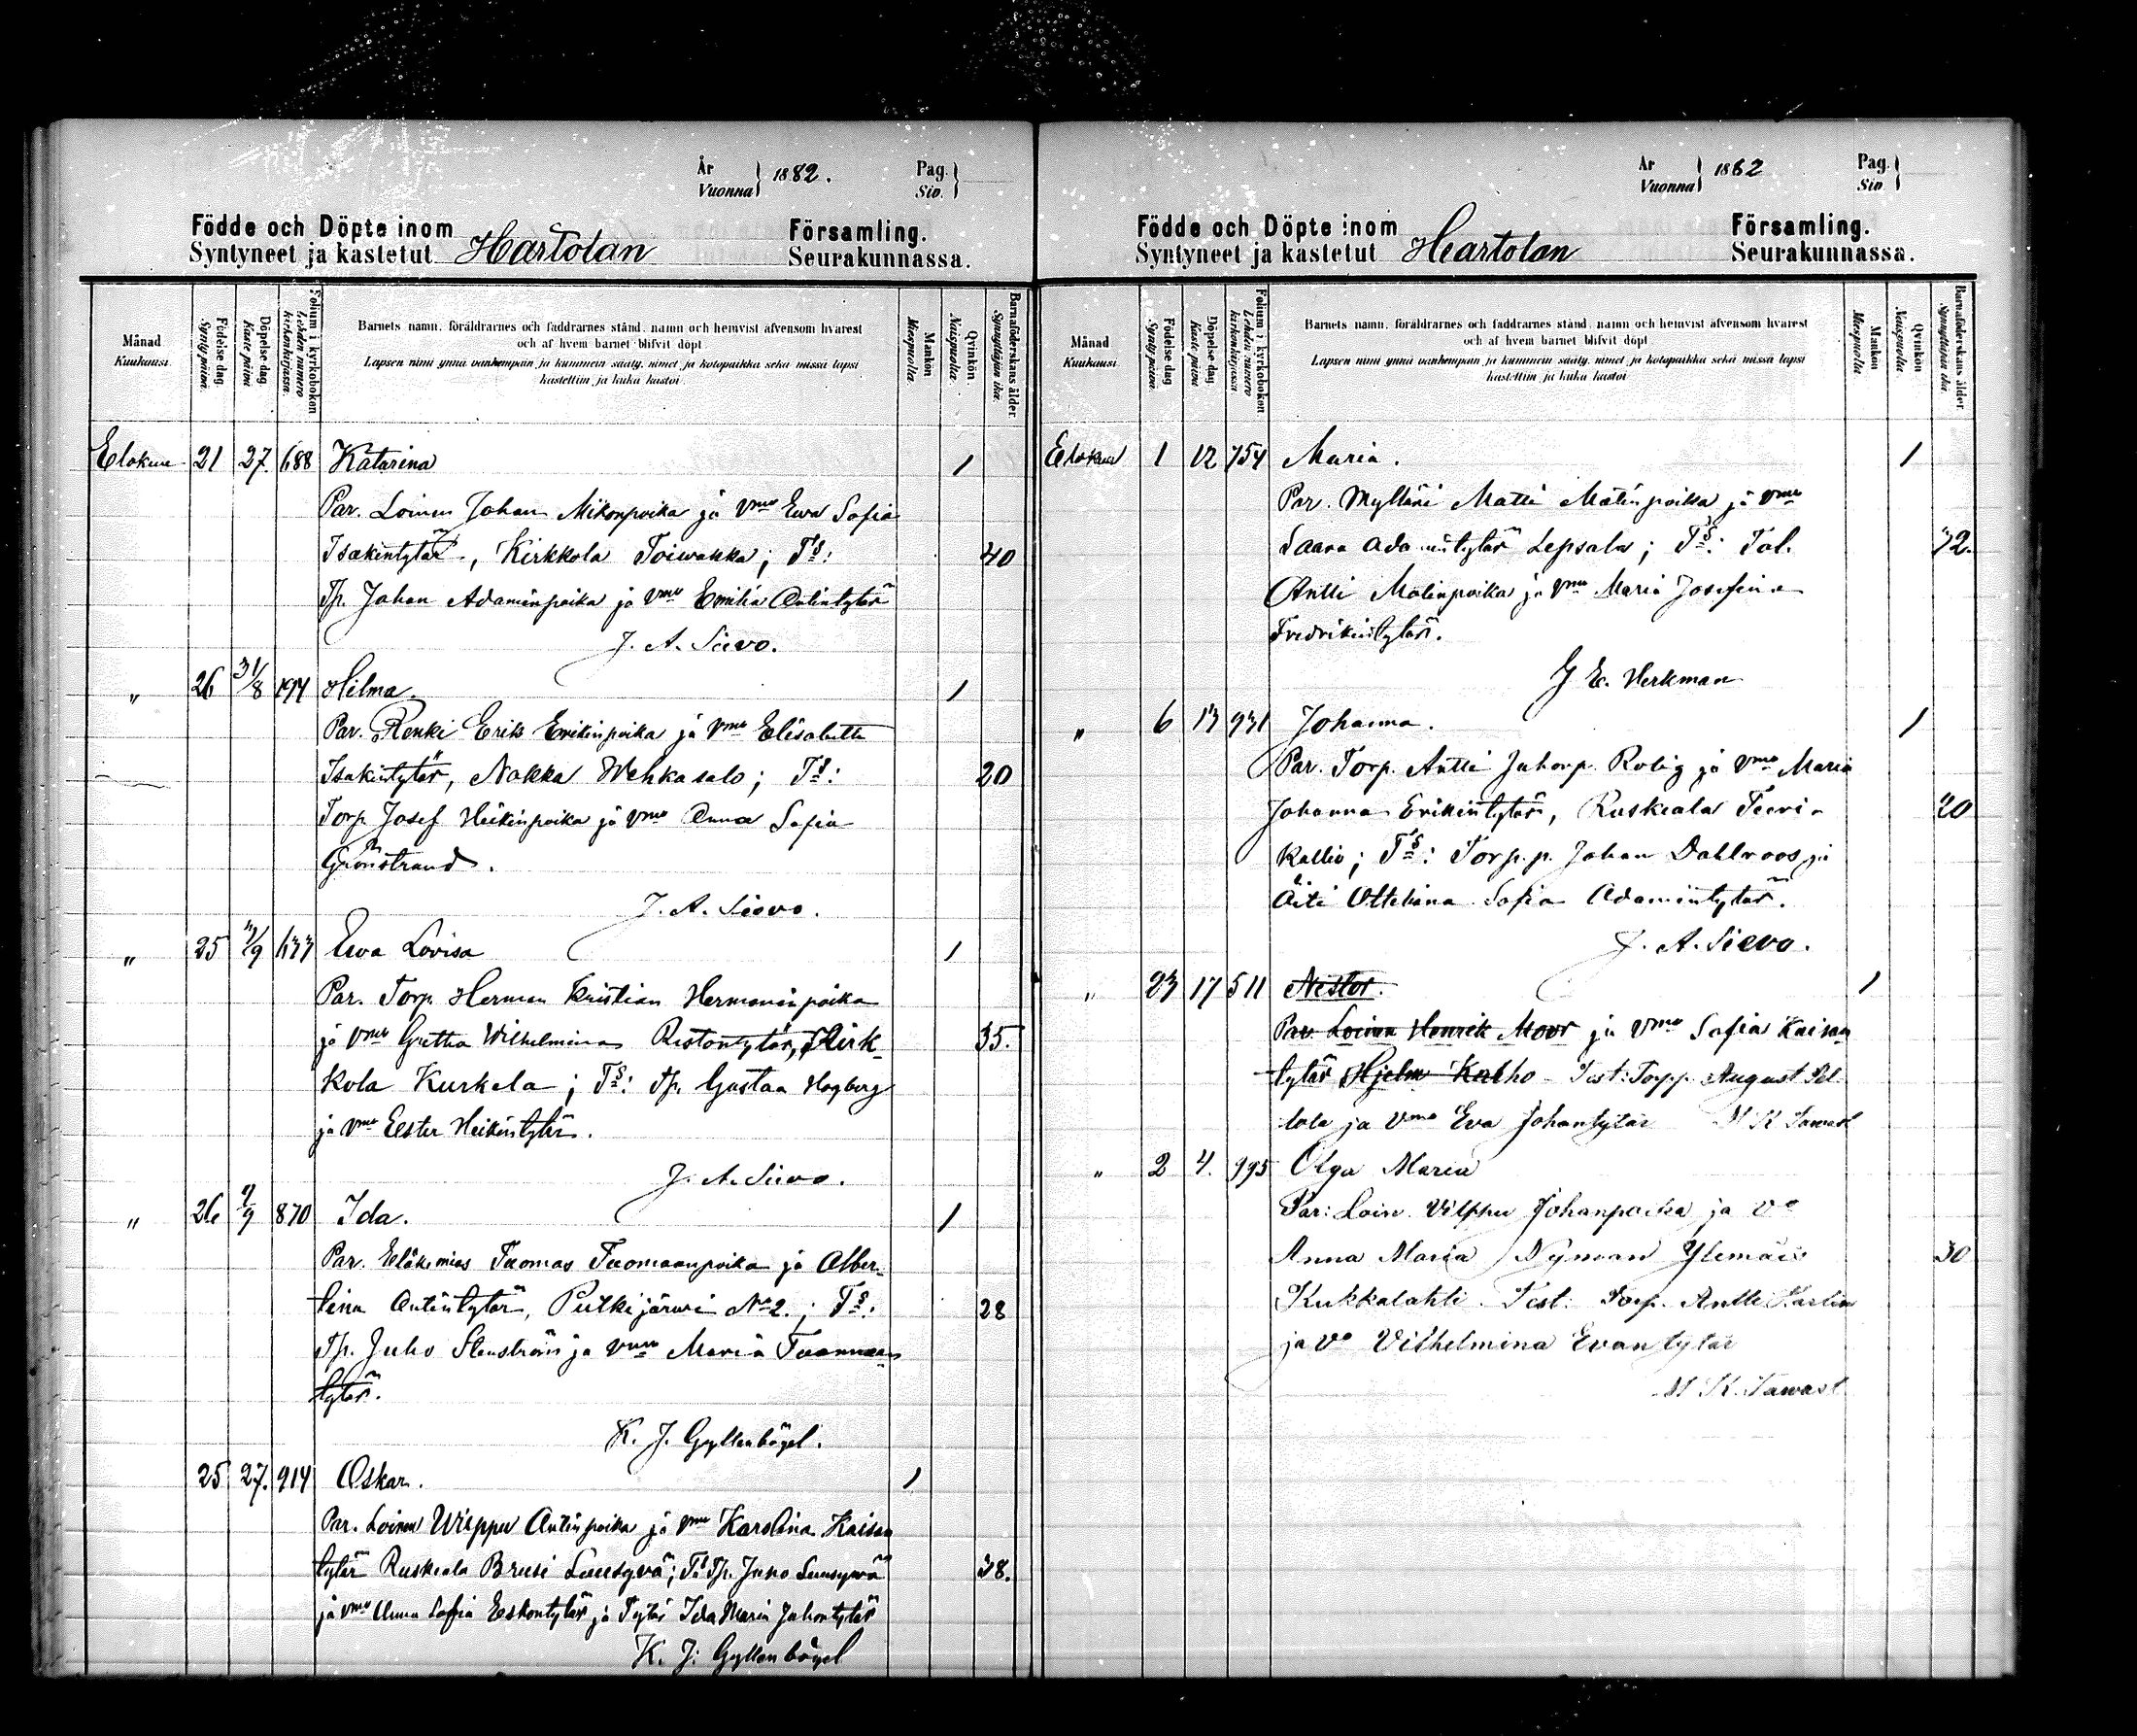 År
Vuonna 1882.
Pag.
Siv.
Födde och Döpte inom
Syntyneet ja kastetut Hartolan
Församling.
Seurakunnassa.
Månad
Kuukausi.
Födelse dag
Synty päivä.
Döpelse dag
Kaste päivä
Folium i kyrkoboken
Lehden numero kirkonkirjassa.
Barnets namn, föräldrarnes och faddrarnes stånd, namn och hemvist äfvensom hvarest
och af hvem barnet blifvit döpt
Lapsen nimi ynnä vanhempain ja kummein sääty, nimet ja kotopaikka sekä missä lapsi
kastettiin ja kuka kastoi
Mankön
Miespuolia.
Qvinkön
Naispuolia.
Barnaföderskans ålder
Synnyttäjän ikä.
Elokuu 21 27 688 Katarina 1
Par. Loinen Johan Mikonpoika ja vmo Ewa Sofia
Isakintytär, Kirkkola Toiwakka; Ts: 40
Tp. Johan Adaminpoika ja vmo Emilia Antintytär
J. A. Sievo.
" 26 31/8 194 Hilma. 1
Par. Renki Erik Erikinpoika ja vmo Elisabetta
Isakintytär, Nokka Wehkasalo; Ts: 20
Torp. Josef Heikinpoika ja vmo Anna Sofia
Grönstrand.
J. A. Sievo.
" 25 3/9 633 Ewa Lovisa 1
Par. Torp. Herman Kristian Hermaninpoika
ja vmo Gretha Wilhelmina Ristontytär, Kirk-
kola Kurkela; Ts: Tp. Gustaa Hagberg 35.
ja vmo Eester Heikintytär.
J. A. Sievo.
" 26 /9 870 Ida. 1
Par. Eläkemies Tuomas Tuomaanpoika ja Alber-
tina Antintytär, Putkijärwi No 2.; Ts: 28
Tp. Juho Stenström ja vmo Maria Tuomaan
tytär.
K. J. Gyllenbögel.
25 27. 914 Oskar. 1
Par. Loinen Wilppu Antinpoika ja vmo Karolina Kaisan
tytär Ruskeala Brusi Suusyvä; Ts Tp. Juho Suusyvä 38.
ja vmo Anna Sofia Eskontytär ja Tytär Ida Maria Juhontytär
K. J. Gyllenbögel
År
Vuonna 1882
Pag.
Siv.
Födde och Döpte inom
Syntyneet ja kastetut Heartolan
Församling.
Seurakunnassa.
Månad
Kuukausi
Födelse dag
Synty päivä.
Döpelse dag
Kaste päivä
Folium i kyrkoboken
Lehden numero kirkonkirjassa
Barnets namn, föräldrarnes och faddrarnes stånd, namn och hemvist äfvensom hvarest
och af hvem barnet blifvit döpt
Lapsen nimi ynnä vanhempain ja kummein sääty, nimet ja kotopaikka sekä missä lapsi
kastettiin ja kuka kastoi
Mankön
Miespuolia
Qvinkön
Naispuolia.
Barnaföderskans ålder
Synnyttäjän ikä.
Elokuu 1 12 754 Maria. 1
Par. Mylläri Matti Matinpoika ja vmo
Saara Adamintytär Lepsala; Ts: Tal. 32.
Antti Matinpoika ja vmo Maria Josefina
Fredrikintytär.
J E. Herkman
" 6 13 931 Johanna. 1
Par. Torp. Antti Juhonp. Rolig ja vmo Maria
Johanna Erikintytär, Ruskeala Teeri- 20
kallio; Ts: Torp. p. Johan Dahlroos ja
Äiti Ottelina Sofia Adamintytär.
J. A. Sievo.
" 23 17 511 Nestor. 1
Par Loinen Henrik Moor ja vmo Sofia Kaisan
tytär Hjelm Kalho Test: Torpp. August Pel
tola ja vmo Eva Johantytär M K Tawast
" 2 4. 995 Olga Maria
Par: Loin. Vilppu Johanpoika ja vo
Anna Maria Nyman Ylemäis 30
Kukkalahti Test: Torp. Antti Karlin
ja vo Vilhelmina Evantytär
M K. Tawast